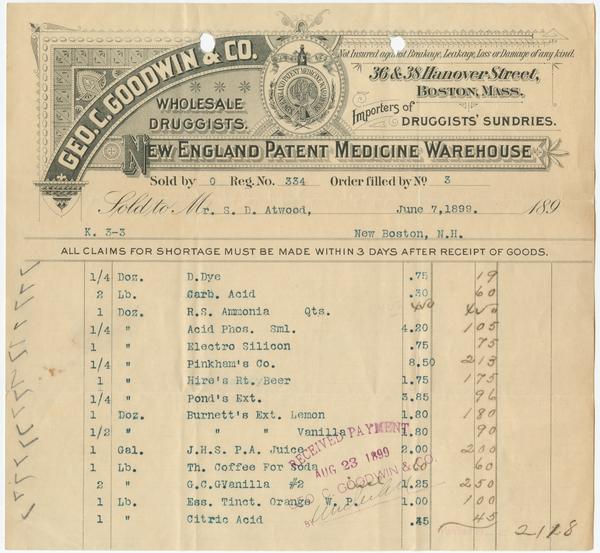 GEO. C. GOODWIN & CO.
WHOLESALE
DRUGGISTS.
Not Insured against Breakage, Leakage, Loss or Damage of any kind.
36 & 38 Hanover Street,
BOSTON, MASS.
Importers of
DRUGGISTS' SUNDRIES.
NEW ENGLAND PATENT MEDICINE WAREHOUSE
Sold by 0 Reg. No. 334 Order filled by No 3
Sold to Mr. S. D. Atwood, June 7,1899. 189
K. 3-3 New Boston, N.H.
ALL CLAIMS FOR SHORTAGE MUST BE MADE WITHIN 3 DAYS AFTER RECEIPT OF GOODS.
1/4 Doz. D.Dye .75 19
2 Lb. Carb. Acid .30 60
1 Doz. R.S. Ammonia Qts.
1/4 " Acid Phos. Sml. 4.20 105
1 " Electro Silicon .75 75
1/4 " Pinkham's Co. 8.50 213
1 " Hire's Rt. Beer 1.75 175
1/4 " Pond's Ext. 3.85 96
1 Doz. Burnett's Ext. Lemon 1.80 180
1/2 " " " Vanilla 1.80 90
1 Gal. J.H.S. P.A. Juice 2.00 200
1 Lb. Th. Coffee For Soda 60 60
2 " G.C.GVanilla #2 1.25 250
1 Lb. Ess. Tinct. Orange W. P. 1.00 100
1 " Citric Acid .45 45
2118
RECEIVED PAYMENT
AUG 23 1899
GEO C. GOODWIN & CO.
BY